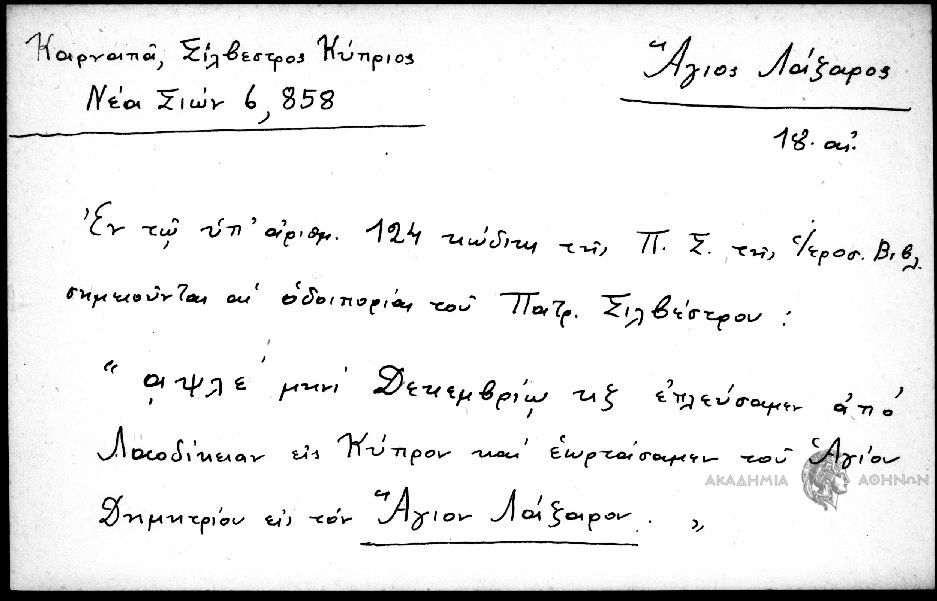 Καρναπᾶ, Σίλβεστρος Κύπριος
Νέα Σιών 6, 858
Ἅγιος Λάζαρος
18. αἰ.
Ἐν τῷ ὑπ' ἀριθμ. 124 κώδικι τῆς Π. Σ. τῆς Ἱεροσ. Βιβλ.
σημειοῦνται αἱ ὁδοιπορίαι τοῦ Πατρ. Σιλβέστρου :
" αψλε' μηνὶ Δεκεμβρίῳ κζ ἐπλεύσαμεν ἀπὸ
Λαοδίκειαν εἰς Κύπρον καὶ ἑωρτάσαμεν τοῦ Ἁγίου
ΑΚΑΔΗΜΙΑ ΑΘΗΝΩΝ
Δημητρίου εἰς τὸν Ἅγιον Λάζαρον. "